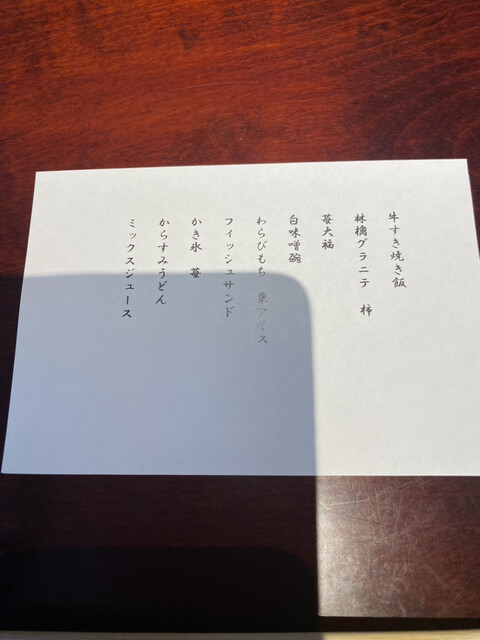 牛すき焼き飯
林檎グラニテ 柿
苺大福
白味噌碗
わらびもち 栗アイス
フィッシュサンド
かき氷 苺
からすみうどん
ミックスジュース